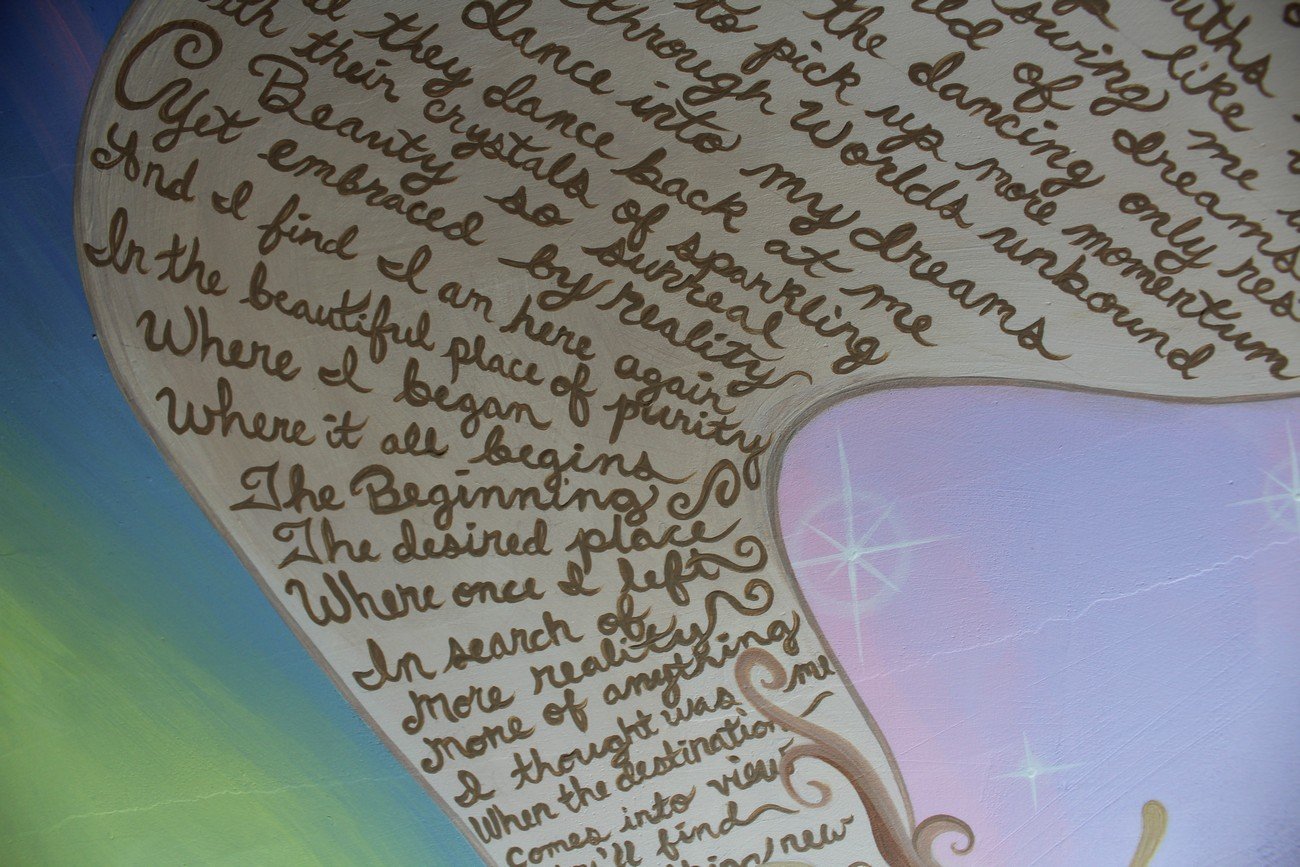 like
swing me
of Dreams
the dancing only
to pick up more momentum
through Worlds unbound
Dance into my dreams
they dance back at me
their crystals of sparkling
Beauty so surreal
Yet embraced by reality
And I find I am here again
In the beautiful place of purity
Where I began
Where it all begins
The Beginning
The desired place
Where once I left
In search of
More reality
More of anything
I thought was me
When the destination
comes into view
you'll find
new